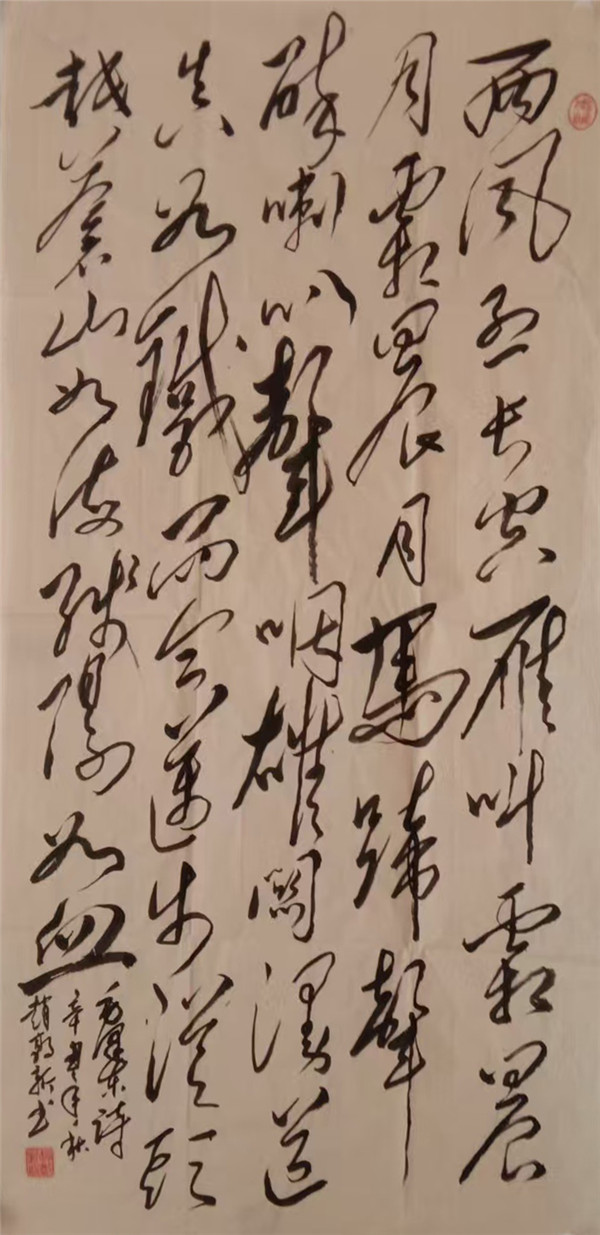 西風烈長空雁叫霜晨
月霜晨月馬蹄聲
碎喇叭聲咽雄關漫道
真如鐵而今邁步從頭
越蒼山如海殘陽如血
毛澤東詩
辛丑年秋
趙書